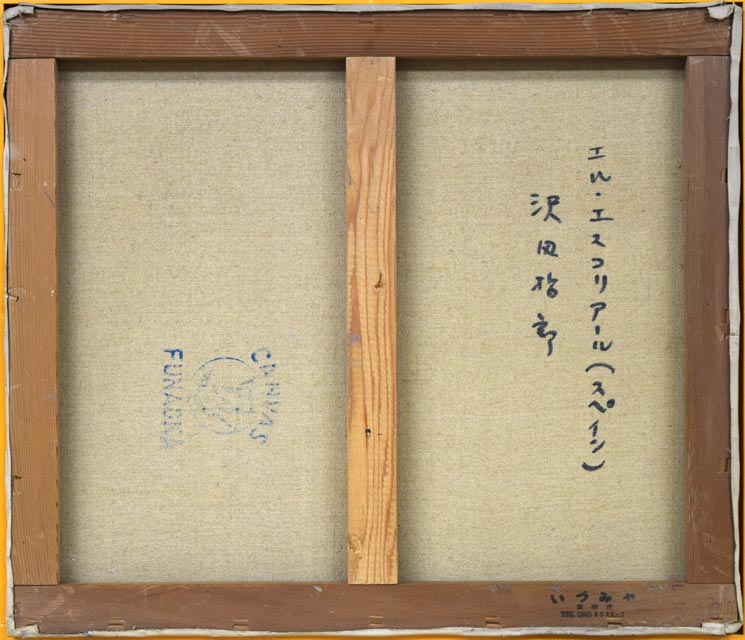 エル・エスコリアール(スペイン)
沢田指郎
CANVAS
FUNAOKA
いづみや